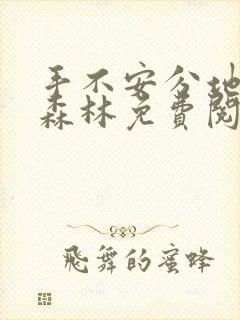 手不安分地
森林免费阅
飛舞的蜜蜂